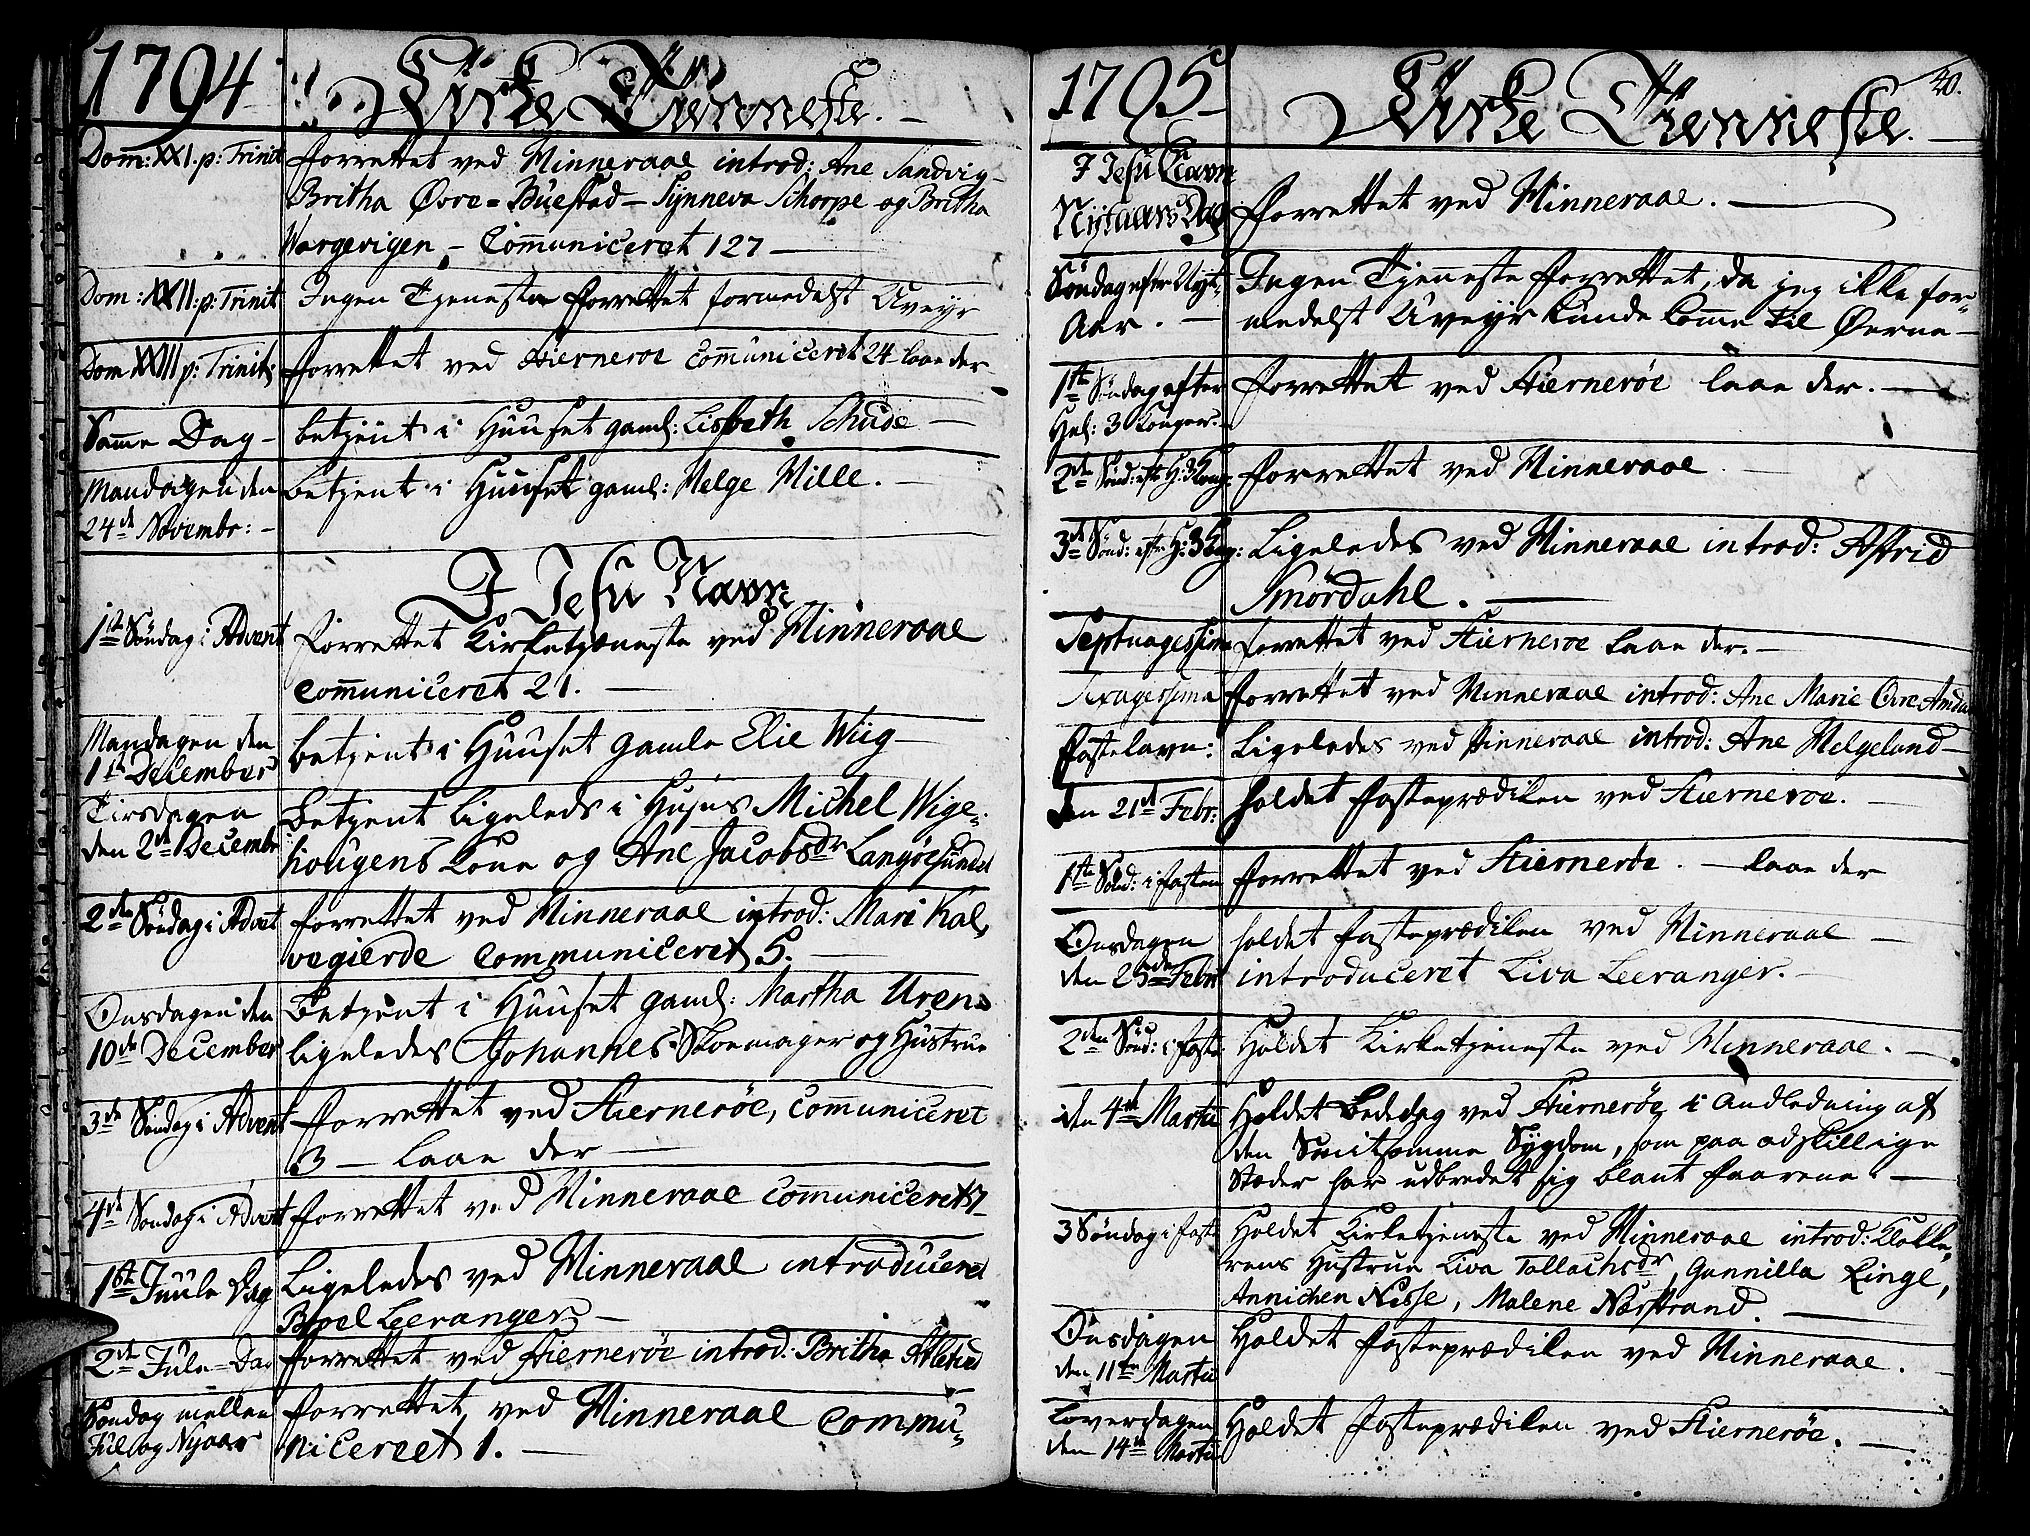 1794
Kirke Tienneste.
Dom: XXI. p: Trinit
forrettet ved Hinneraae introd: Ane Sandvig
Britha Øvre=Buestad - Synneva Schorpe og Britha
Wargevigen - Communiceret 127
Dom: XXII: p: Trinit
Ingen Tjeneste forrettet formedelst Uveyr
Dom XXIII p: Trinit:
forrettet ved Hierneroe Communiceret 24 laae der
Samme Dag -
betjent i Huuset gaml: Lisbeth Schude
Mandagen den
24de Novembr:
betjent i Huuset gaml: Helge Mille.
I Jesu Navn
1ste Søndag i Advent
forrettet Kirketjeneste ved Hinneraae
Communiceret 21.
Mandagen den
1ste December
betjent i Huuset gamle Elie Wiig
Tirsdagen
den 2den Decembr
Betjent ligeleds i Husene Michel Wige-
hougens Kone og Ane Jacobsdr Langøesundet
2den Søndag i Advent
forrettet ved Hinneraae introd: Mari Kal,
vegierde Communiceret 5.
Onsdagen den
10de December
Betjent i Huuset gaml: Martha Uren
ligeledes Johannes Skoemager og Hustrue
3de Søndag i Advent
forrettet ved Hiernerøe, Communiceret
3 - laae der
4de Søndag i Advent
forrettet ved Hinneraae Communiceret 7
1ste Juule Dag
Ligeledes ved Hinneraae introduceret
Boel Leeranger
2den Jule=Dag
forrettet ved Hiernerøe introd: Britha Atletved
Søndag mellem
Jul og Nyaar
forrettet ved Hinneraae Commu-
niceret 1.
1795
Kirke Tienneste.
40.
I Jesu Navn
Nytaars Dag
forrettet ved Hinneraae.
Søndag efter Nyt-
Aar.
Ingen Tjenneste forrettet, da jeg ikke for-
medelst Uveyr kunde komme til Øerne
1ste Søndag efter
Hel: 3 Konger.
forrettet ved Hiernerøe laae der.
2den Sønd: eftr H: 3 Kong:
forrettet ved Hinneraae
3de Sønd: eftr H: 3 Kong:
Ligeledes ved Hinneraae introd: Astrid
Smørdahl.
Septuagesima
forrettet ved Hierneroe laae der.
Sexagesima
forrettet ved Hinneraae introd: Ane Marie Øvre Amdal
Fastelavn:
Ligeledes ved Hinneraae introd: Ane Helgeland
den 21de Febr:
holdet fasteprædiken ved Hierneroe.
1ste Sønd: i fasten
forrettet ved Hiernerøe. - laae der
Onsdagen
den 25de Febr
holdet fasteprædiken ved Hinneraae
introduceret Liva Leeranger.
2den Sønd: i faste
Holdet Kirketjeneste ved Hinneraae.
den 4de Martii
Holdet Bededag ved Hiernerøe i Andledning af
den Smitsomme Sygdom, som paa adskillige
Stæder har udbredet sig blant faarene
3 Søndag i faste
Holdet Kirketjeneste ved Hinneraae introd: Klokke-
rens Hustrue Liva Tollachsdr, Gunnilla Linge,
Annichen Nesse, Malene Nærstrand.
Onsdagen
den 11te Martii
Holdet fasteprædiken ved Hinneraae.
Løverdagen
den 14de Martii
Holdet fasteprædiken ved Hiernerøe.